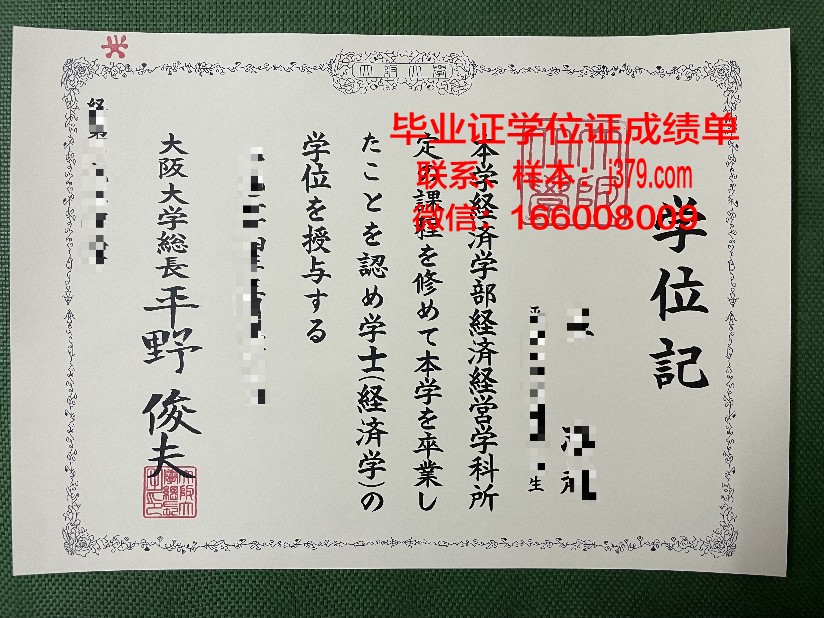 毕业证学位证成绩单
联系、样本：j379.com
微信：166008009
学位記
生
本学経済学部経済経営学科所
定の課程を修めて本学を卒業し
たことを認め学士(経済学)の
学位を授与する
大阪大学総長 平野俊夫